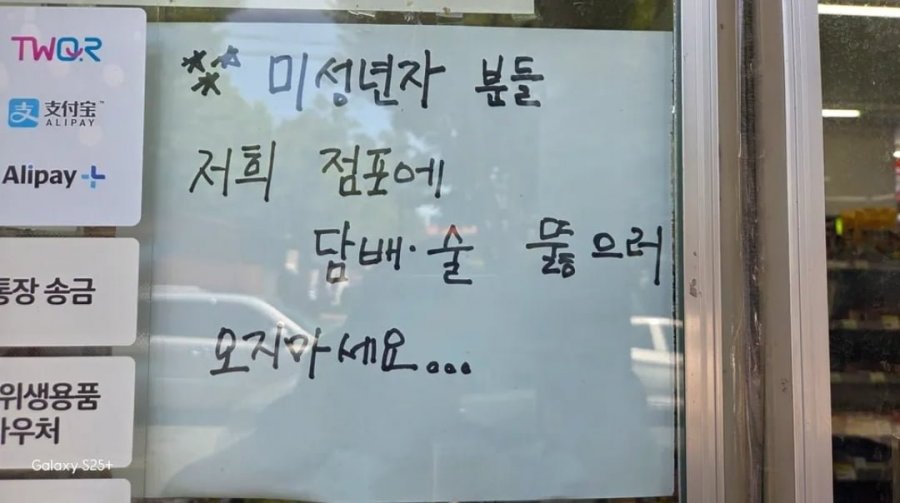 TWQR
支付宝™
ALIPAY
Alipay+
통장 송금
위생용품
*** 미성년자 분들
저희 점포에
담배·술 뚫으러
오지마세요...
Galaxy S25+